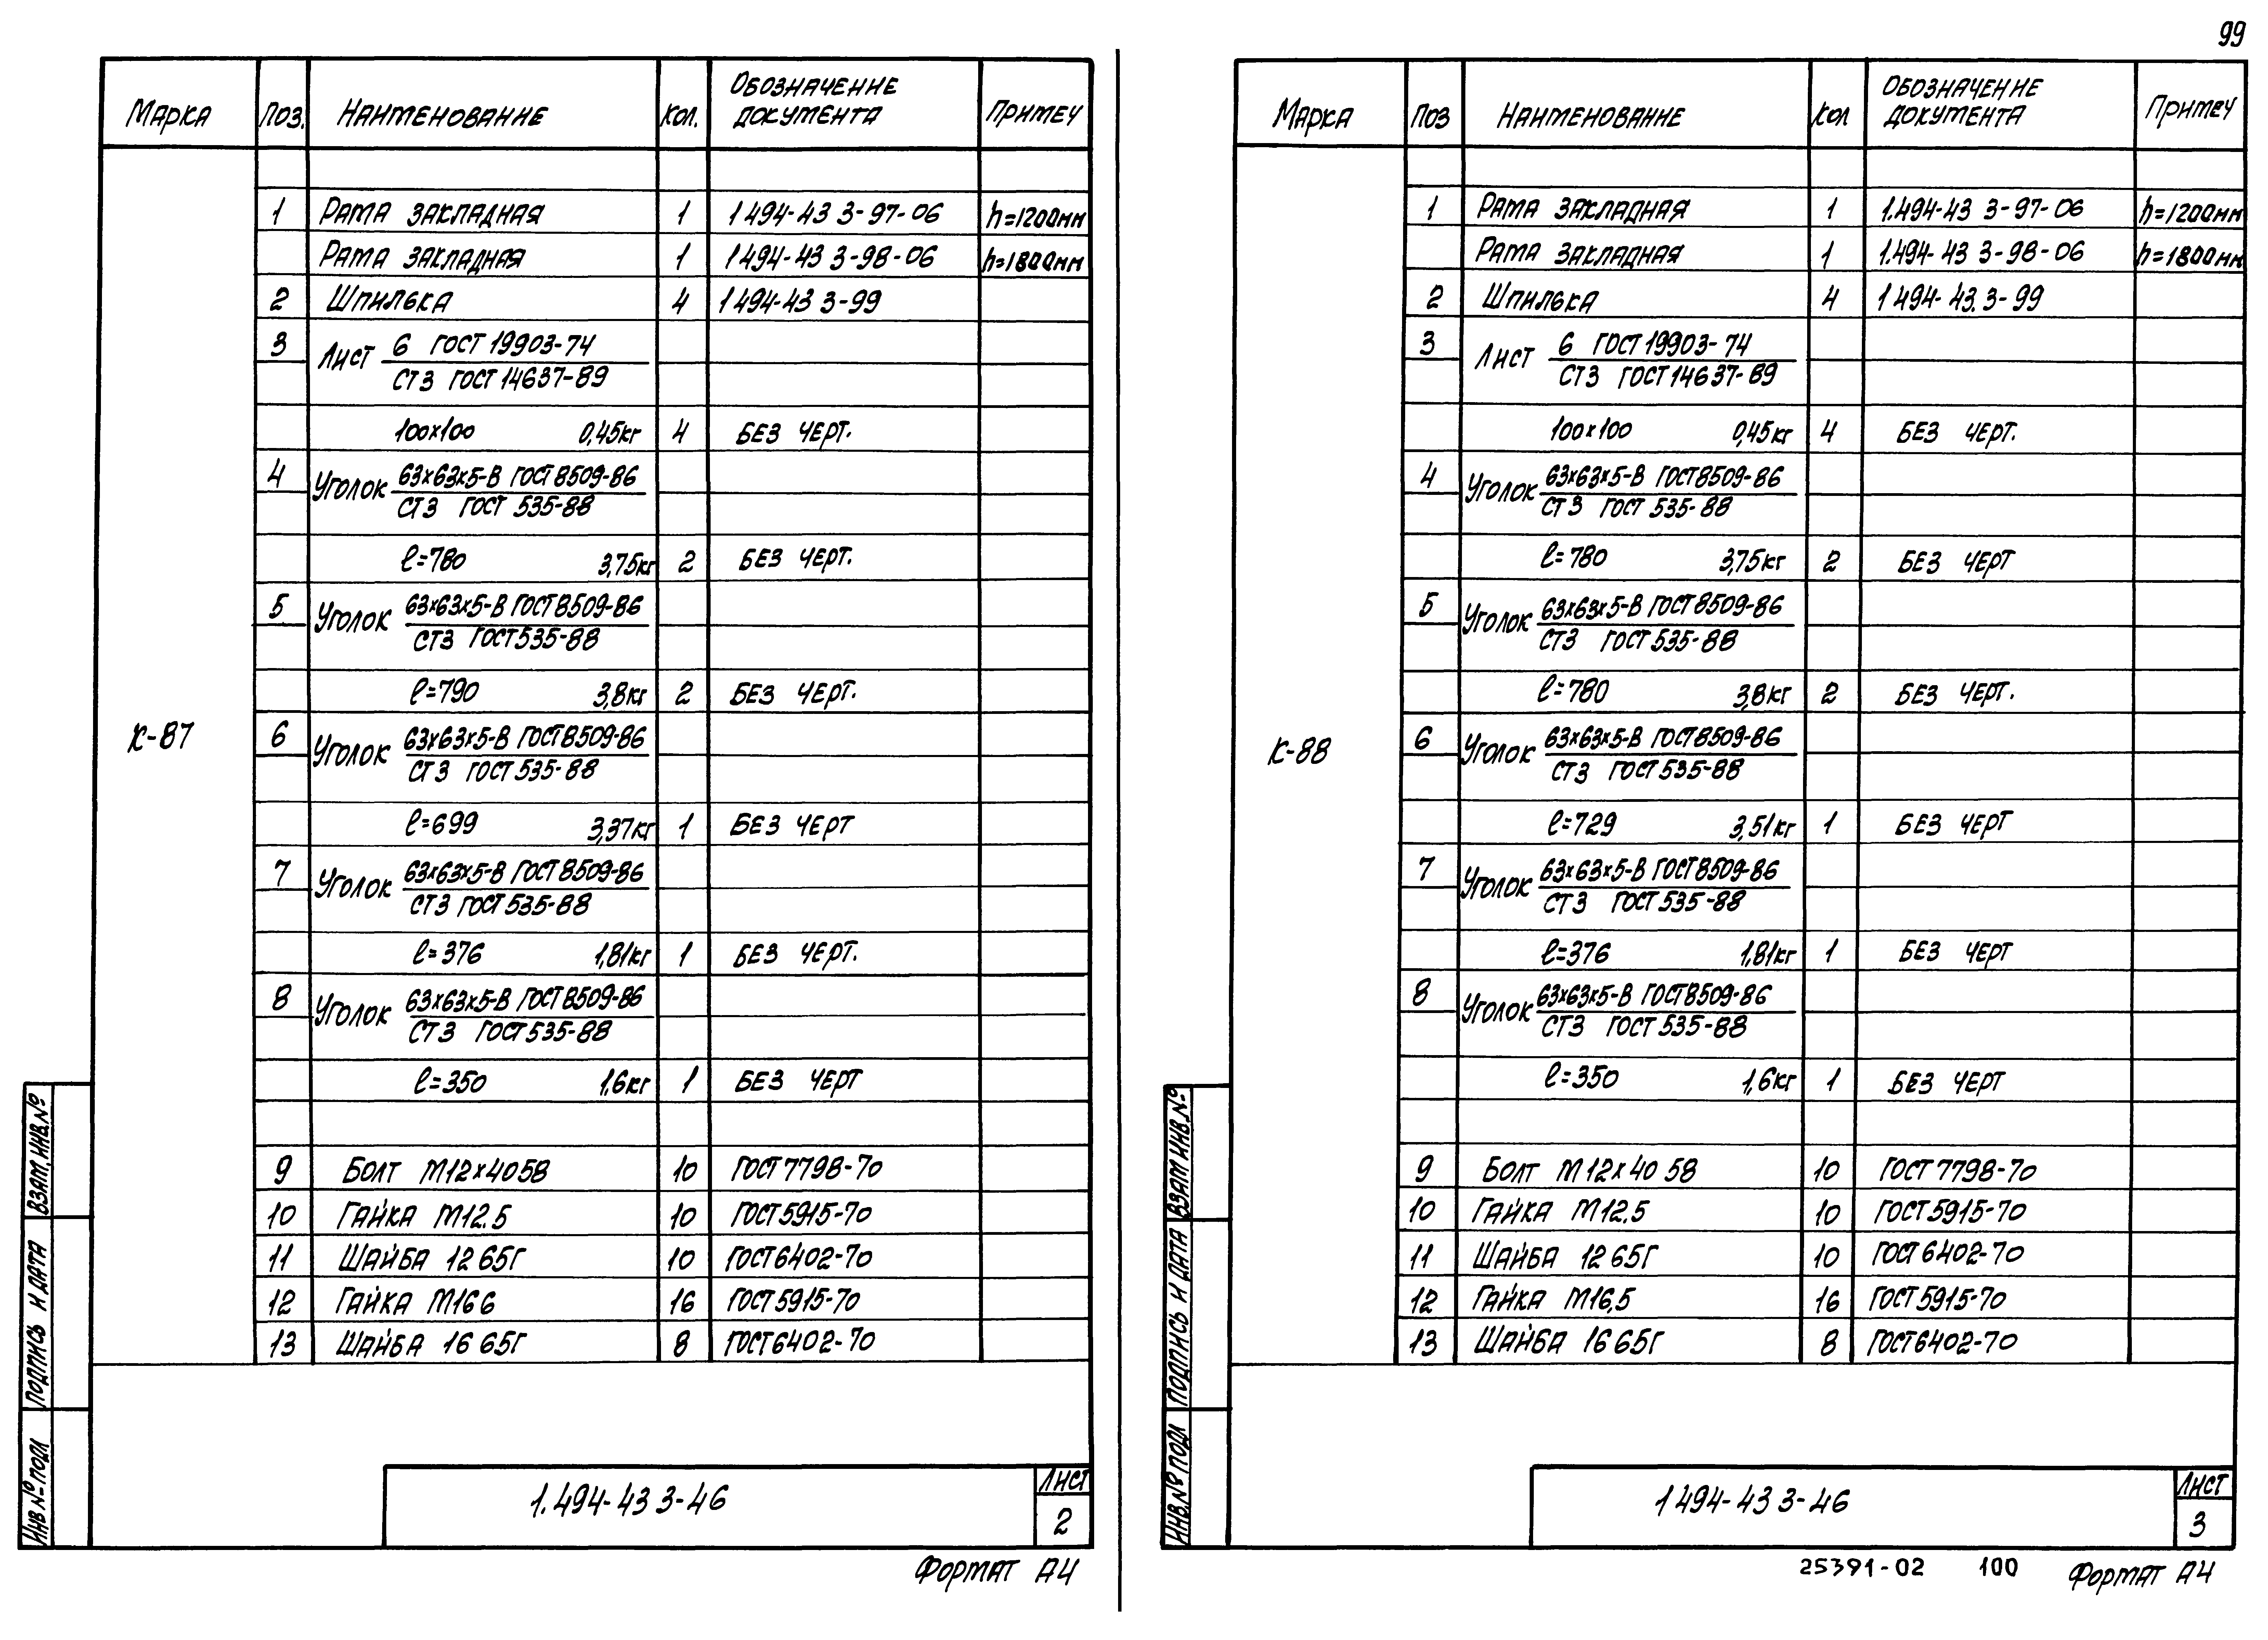 99
Марка Поз. Наименование Кол. Обозначение документа Примеч
К-87
1 Рама закладная 1 1 494-43 3-97-06 h=1200мм
Рама закладная 1 1 494-43 3-98-06 h=1800мм
2 Шпилька 4 1 494-43 3-99
3 Лист 6 ГОСТ 19903-74
Ст3 ГОСТ 14637-89
100х100 0,45кг 4 Без черт.
4 Уголок 63х63х5-В ГОСТ 8509-86
Ст3 ГОСТ 535-88
ℓ=780 3,75кг 2 Без черт.
5 Уголок 63х63х5-В ГОСТ 8509-86
Ст3 ГОСТ 535-88
ℓ=790 3,8кг 2 Без черт.
6 Уголок 63х63х5-В ГОСТ 8509-86
Ст3 ГОСТ 535-88
ℓ=699 3,37кг 1 Без черт
7 Уголок 63х63х5-В ГОСТ 8509-86
Ст3 ГОСТ 535-88
ℓ=376 1,81кг 1 Без черт.
8 Уголок 63х63х5-В ГОСТ 8509-86
Ст3 ГОСТ 535-88
ℓ=350 1,6кг 1 Без черт
9 Болт М12х40 58 10 ГОСТ 7798-70
10 Гайка М12.5 10 ГОСТ 5915-70
11 Шайба 12 65Г 10 ГОСТ 6402-70
12 Гайка М16 6 16 ГОСТ 5915-70
13 Шайба 16 65Г 8 ГОСТ 6402-70
Взам.инв.№
Подпись и дата
Инв № подл
1.494-43 3-46
Лист
2
Формат А4
Марка Поз Наименование Кол Обозначение документа Примеч
К-88
1 Рама закладная 1 1.494-43 3-97-06 h=1200мм
Рама закладная 1 1.494-43 3-98-06 h=1800мм
2 Шпилька 4 1 494-43.3-99
3 Лист 6 ГОСТ 19903-74
Ст3 ГОСТ 14637-89
100х100 0,45кг 4 Без черт.
4 Уголок 63х63х5-В ГОСТ 8509-86
Ст3 ГОСТ 535-88
ℓ=780 3,75кг 2 Без черт
5 Уголок 63х63х5-В ГОСТ 8509-86
Ст3 ГОСТ 535-88
ℓ=780 3,8кг 2 Без черт.
6 Уголок 63х63х5-В ГОСТ 8509-86
Ст3 ГОСТ 535-88
ℓ=729 3,51кг 1 Без черт
7 Уголок 63х63х5-В ГОСТ 8509-86
Ст3 ГОСТ 535-88
ℓ=376 1,81кг 1 Без черт
8 Уголок 63х63х5-В ГОСТ 8509-86
Ст3 ГОСТ 535-88
ℓ=350 1,6кг 1 Без черт
9 Болт М12х40 58 10 ГОСТ 7798-70
10 Гайка М12.5 10 ГОСТ 5915-70
11 Шайба 12 65Г 10 ГОСТ 6402-70
12 Гайка М16,5 16 ГОСТ 5915-70
13 Шайба 16 65Г 8 ГОСТ 6402-70
Взам инв.№
Подпись и дата
Инв.№ подл
1 494-43 3-46
Лист
3
25391-02 100 Формат А4